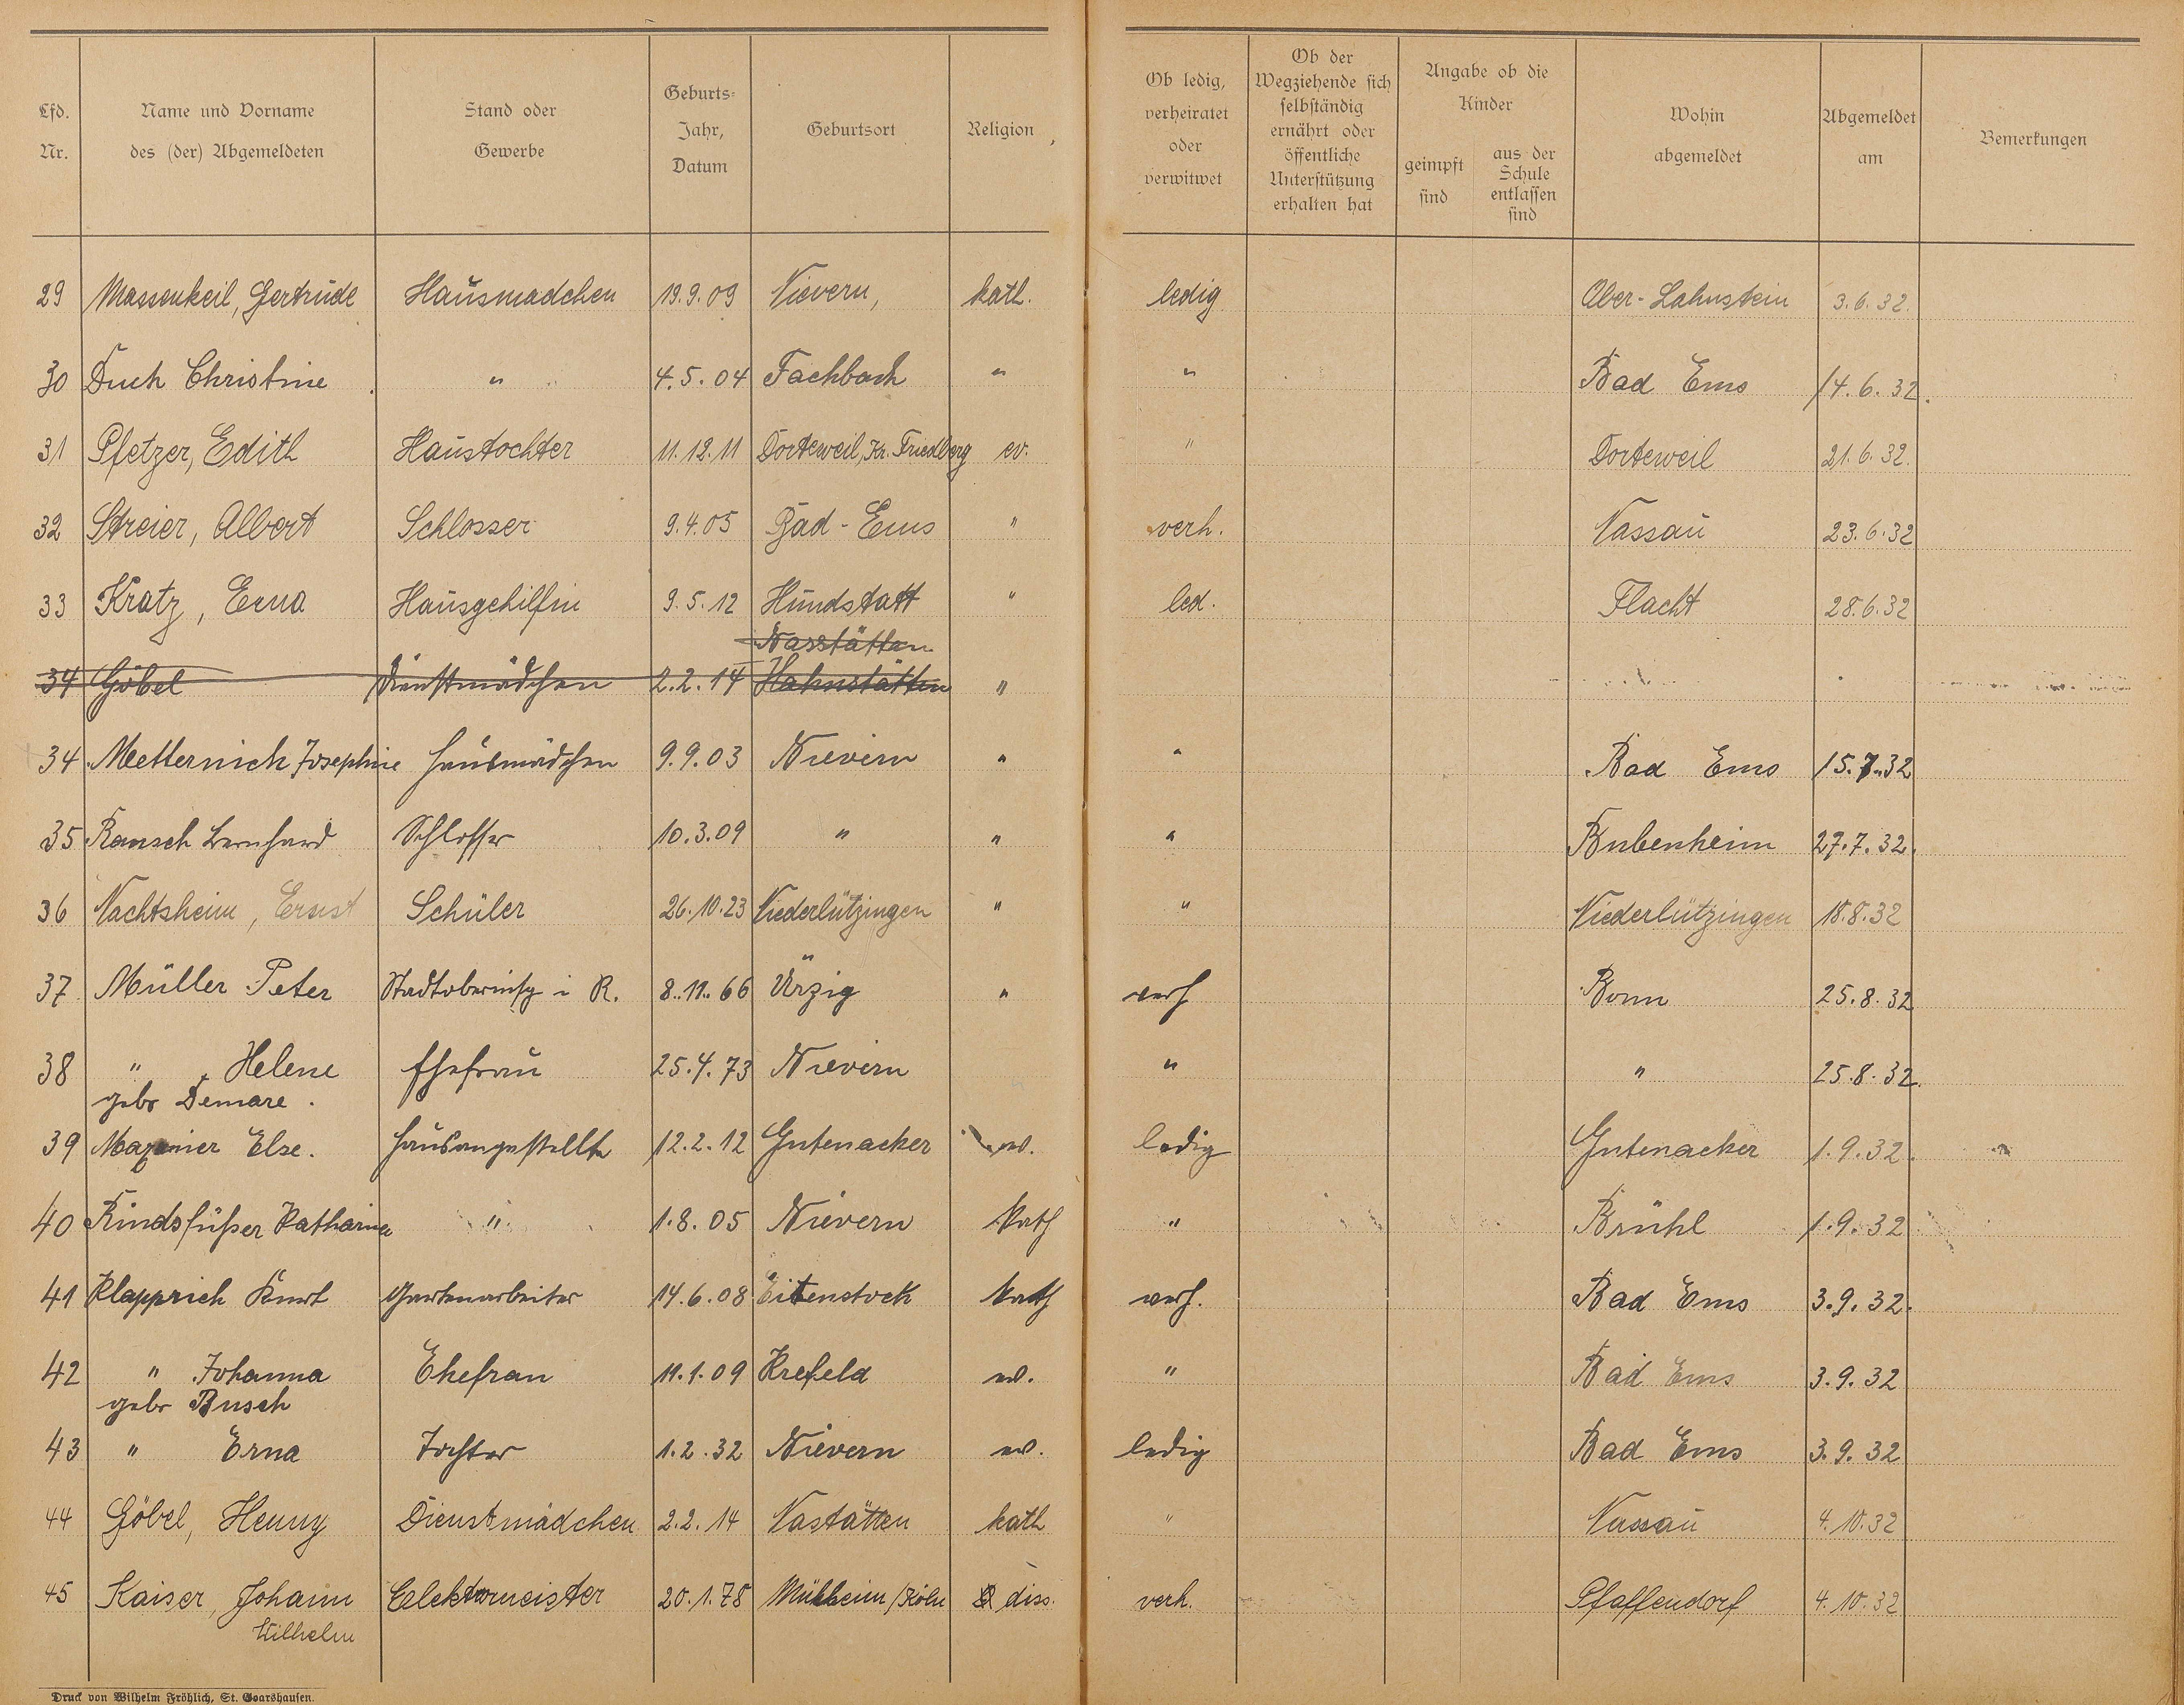 Lfd. Nr. Name und Vorname des (der) Abgemeldeten Stand oder Gewerbe Geburts-Jahr, Datum Geburtsort Religion Ob ledig, verheiratet oder verwitwet Ob der Wegziehende sich selbständig ernährt oder öffentliche Unterstützung erhalten hat Angabe ob die Kinder geimpft sind aus der Schule entlassen sind Wohin abgemeldet Abgemeldet am Bemerkungen
29 Massenkeil, Gertrude Hausmädchen 19.9.09 Nievern, kath. ledig Ober-Lahnstein 3.6.32.
30 Duch Christine " 4.5.04 Fachbach " " Bad Ems 14.6.32.
31 Pfetzer, Edith Haustochter 11.12.11 Dorteweil, Kr. Friedberg ev. " Dorteweil 21.6.32.
32 Streier, Albert Schlosser 9.4.05 Bad-Ems " verh. Nassau 23.6.32
33 Kratz, Erna Hausgehilfin 9.5.12 Hundstatt " led. Flacht 28.6.32
Nasstätten
34 Göbel Dienstmädchen 2.2.14 Hahnstätten "
34 Metternich Josephine Hausmädchen 9.9.03 Nievern " " Bad Ems 15.7.32
35 Rausch Bernhard Schlosser 10.3.09 " " " Bubenheim 27.7.32.
36 Nachtsheim, Ernst Schüler 26.10.23 Niederlützingen " " Niederlützingen 18.8.32
37 Müller Peter Stadtoberinsp i R. 8.11.66 Ürzig " verh Bonn 25.8.32
38 " Helene Ehefrau 25.4.73 Nievern " " 25.8.32.
geb Demare.
39 Else. Hausangestellte 12.2.12 Gutenacker ev. ledig Gutenacker 1.9.32.
40 Rindsfüßer Katharina " 1.8.05 Nievern kath " Brühl 1.9.32
41 Klapprich Kurt Gartenarbeiter 14.6.08 kath verh. Bad Ems 3.9.32.
42 " Johanna Ehefrau 11.1.09 Krefeld ev. " Bad Ems 3.9.32
geb Busch
43 " Erna Tochter 1.2.32 Nievern ev. ledig Bad Ems 3.9.32
44 Göbel, Henny Dienstmädchen 2.2.14 Nastätten kath " Nassau 4.10.32
45 Kaiser, Johann Elektromeister 20.1.78 Mülheim/Köln diss. verh. Pfaffendorf 4.10.32
Wilhelm
Druck von Wilhelm Fröhlich, St. Goarshausen.